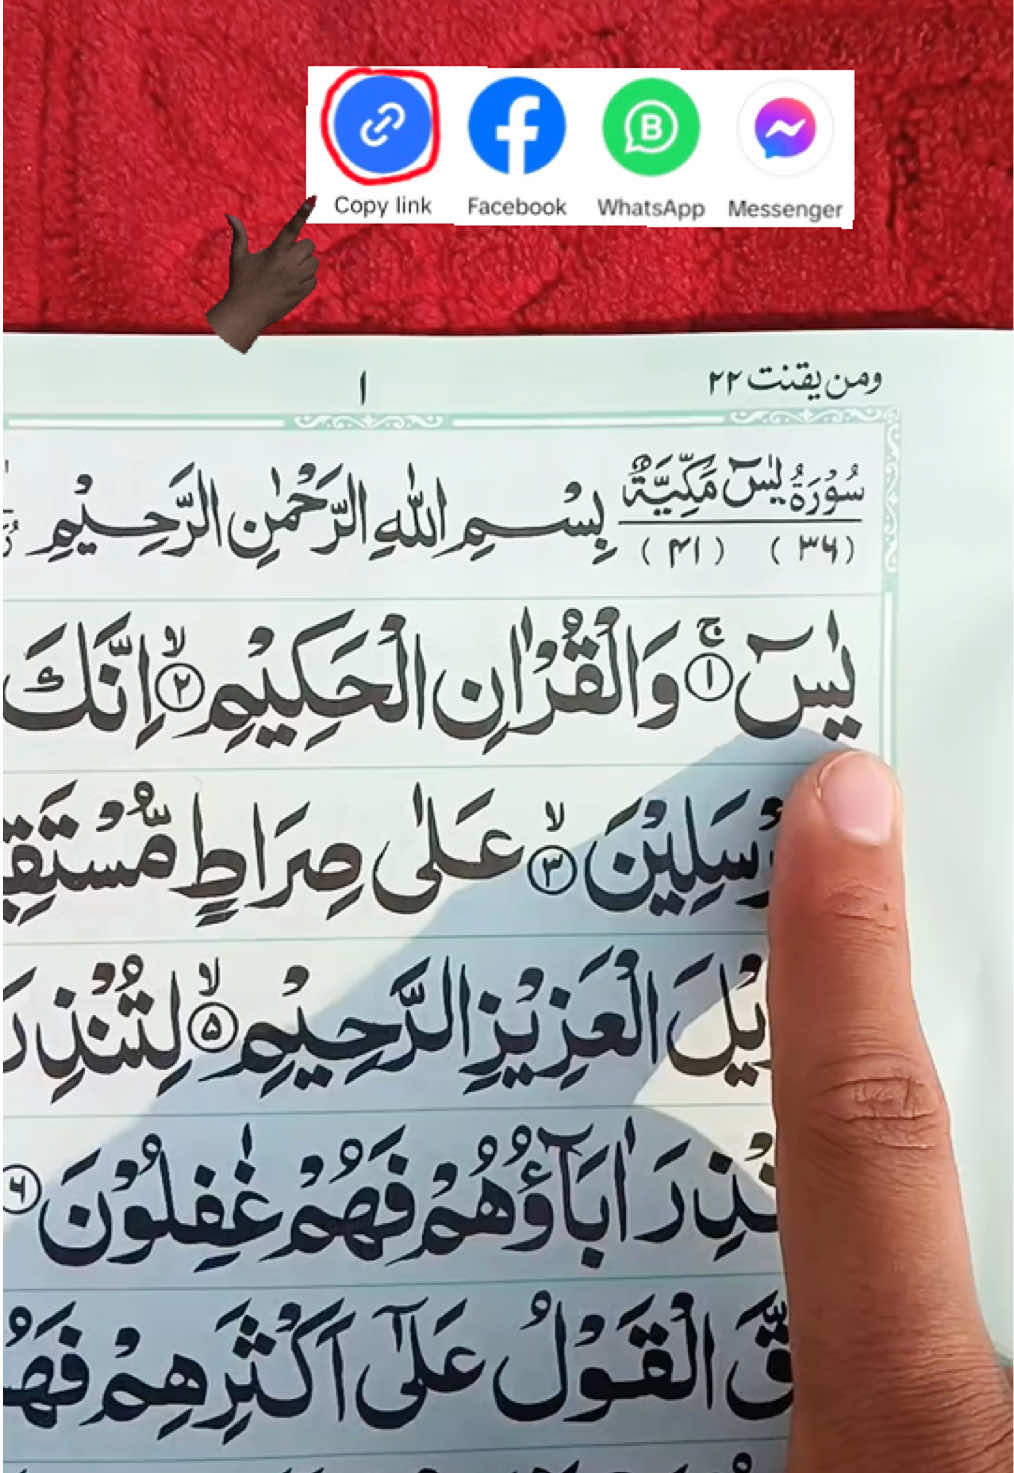 Copy link Facebook WhatsApp Messenger
ومن يقنت ٢٢
١
سُوْرَةُ يٰسٓ مَكِّيَّةٌ
(٣٦) (٤١)
بِسْمِ اللّٰهِ الرَّحْمٰنِ الرَّحِيْمِ
يٰسٓ ۚ ١ وَالْقُرْاٰنِ الْحَكِيْمِ ۙ ٢ اِنَّكَ
عَلٰى صِرَاطٍ ٣ۙ رْسَلِيْنَ
يْلَ الْعَزِيْزِ الرَّحِيْمِ ۙ ٥ لِتُنْذِرَ
نْذِرَ اٰبَآؤُهُمْ فَهُمْ غٰفِلُوْنَ ٦
قَّ الْقَوْلُ عَلٰٓى اَكْثَرِهِمْ فَهُ